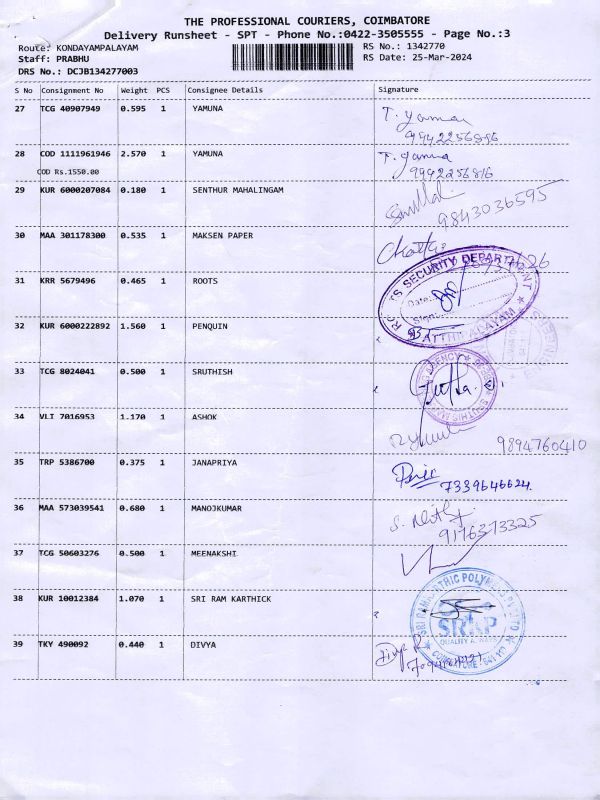 THE PROFESSIONAL COURIERS, COIMBATORE
Delivery Runsheet - SPT - Phone No.:0422-3505555 - Page No.:3
Route: KONDAYAMPALAYAM RS No.: 1342770
Staff: PRABHU RS Date: 25-Mar-2024
DRS No.: DCJB134277003
S No Consignment No Weight PCS Consignee Details Signature
27 TCG 40907949 0.595 1 YAMUNA T. Yamuna
9942256816
28 COD 1111961946 2.570 1 YAMUNA T. Yamuna
COD Rs.1550.00 9942256816
29 KUR 6000207084 0.180 1 SENTHUR MAHALINGAM
9843036595
30 MAA 301178300 0.535 1 MAKSEN PAPER
31 KRR 5679496 0.465 1 ROOTS
ROOTS SECURITY DEPARTMENT
Date:
Sign:
32 KUR 6000222892 1.560 1 PENQUIN
33 TCG 8024041 0.500 1 SRUTHISH
34 VLT 7016953 1.170 1 ASHOK
9894760410
35 TRP 5386700 0.375 1 JANAPRIYA
7339646624
36 MAA 573039541 0.680 1 MANOJKUMAR
9176373325
37 TCG 50603276 0.500 1 MEENAKSHI
38 KUR 10012384 1.070 1 SRI RAM KARTHICK
SRKP
QUALITY ALWAYS
39 TKY 490092 0.440 1 DIVYA Divya R